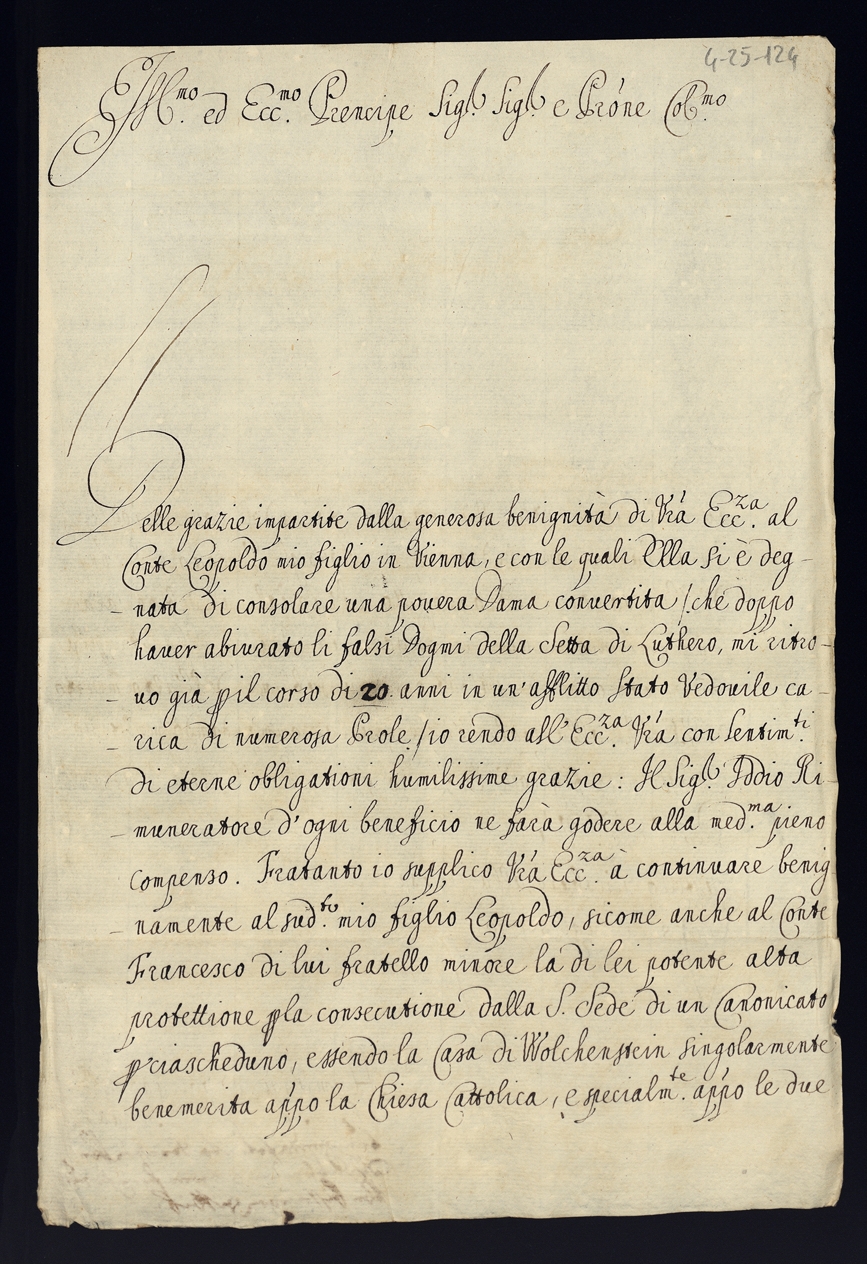 4-25-124
Ill.mo ed Ecc.mo Prencipe Sig.r Sig.r e Prône Col.mo
Delle grazie impartite dalla generosa benignità di Vrá Ecc.za al
Conte Leopoldo mio figlio in Vienna, e con le quali Ella si è deg-
-nata di consolare una povera Dama convertita /: che doppo
haver abiurato li falsi Dogmi della Setta di Luthero, mi ritro-
-vo già p il corso di 20 anni in un' afflitto stato Vedovile ca-
-rica di numerosa Prole :/ io rendo all' Ecc.za Vrá con sentim.ti
di eterne obligationi humilissime grazie: Il Sig.r Iddio Ri-
-muneratore d'ogni beneficio ne farà godere alla med.ma pieno
compenso. Fratanto io supplico Vrá Ecc.za à continuare benig
-namente al sud.to mio figlio Leopoldo, sicome anche al Conte
Francesco di lui fratello minore la di lei potente alta
protettione p la consecutione dalla S. Sede di un Canonicato
p ciascheduno, essendo la Casa di Wolchenstein singolarmente
benemerita appo la Chiesa Cattolica, e specialm.te appo le due